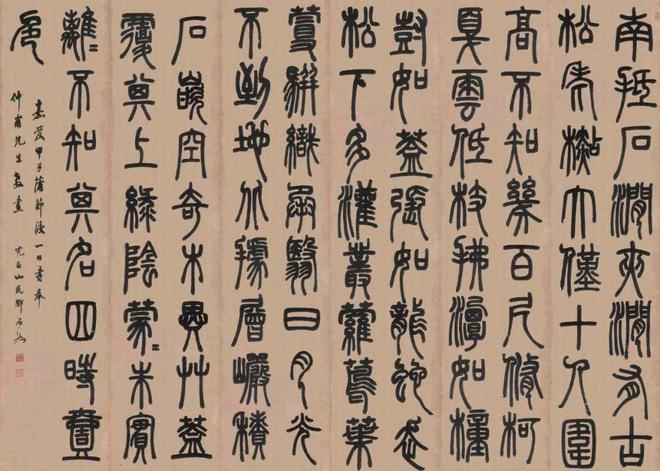 南抵石澗夾澗有古
松老檆大僅十人圍
高不知幾百尺修柯
戛雲低枝拂潭如幢
豎如蓋張如龍蛇走
松下多灌叢蘿蔦葉
蔓駢織承翳日月光
不到地北據層巖積
石嵌空奇木異艸蓋
覆其上綠陰蒙〻朱實
離〻不知其名四時壹
色
嘉慶甲子蒲節後一日書奉
仲甫先生教
完白山民鄧石如